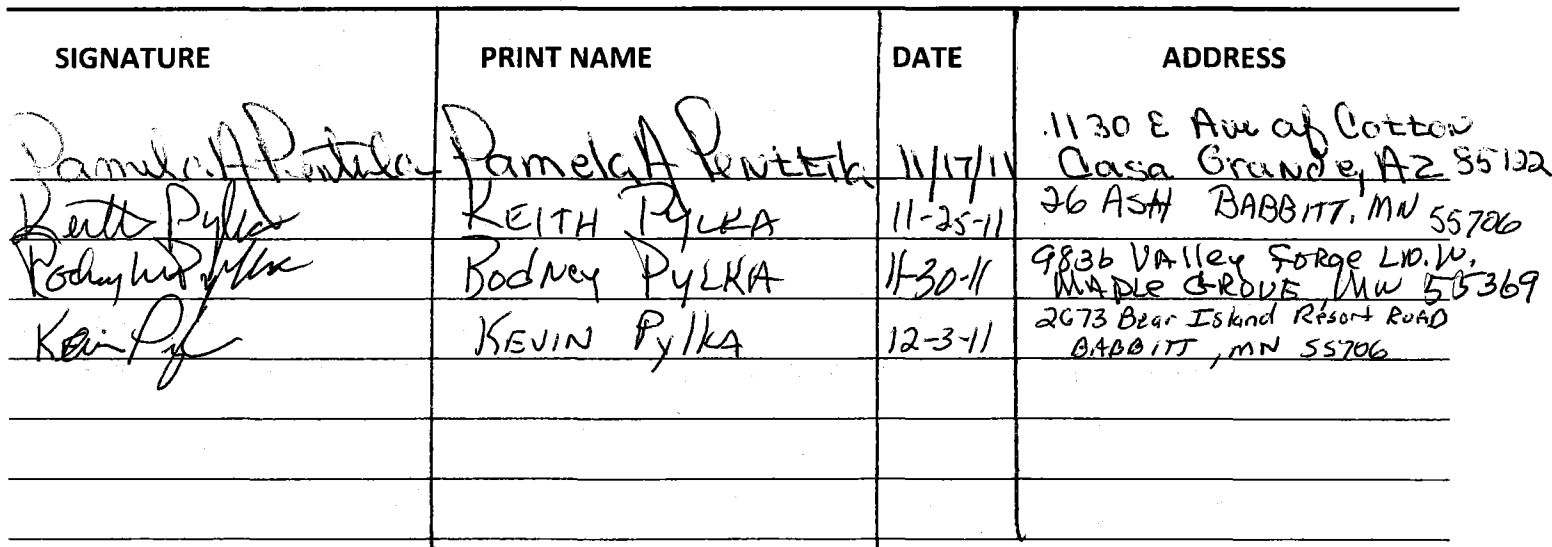 SIGNATURE PRINT NAME DATE ADDRESS
Pamela A Penttila Pamela A Penttila 11/17/11 1130 E Ave of Cotton
Casa Grande, AZ 85122
Keith Pylka KEITH PYLKA 11-25-11 26 ASH BABBITT, MN 55706
Rodney Pylka Rodney PYLKA 11-30-11 9836 VAlley FORge LN. W.
MAPLe GROVE, MN 55369
Kevin Pyl KEVIN PylkA 12-3-11 2673 Bear Island Resort ROAD
BABBITT, MN 55706